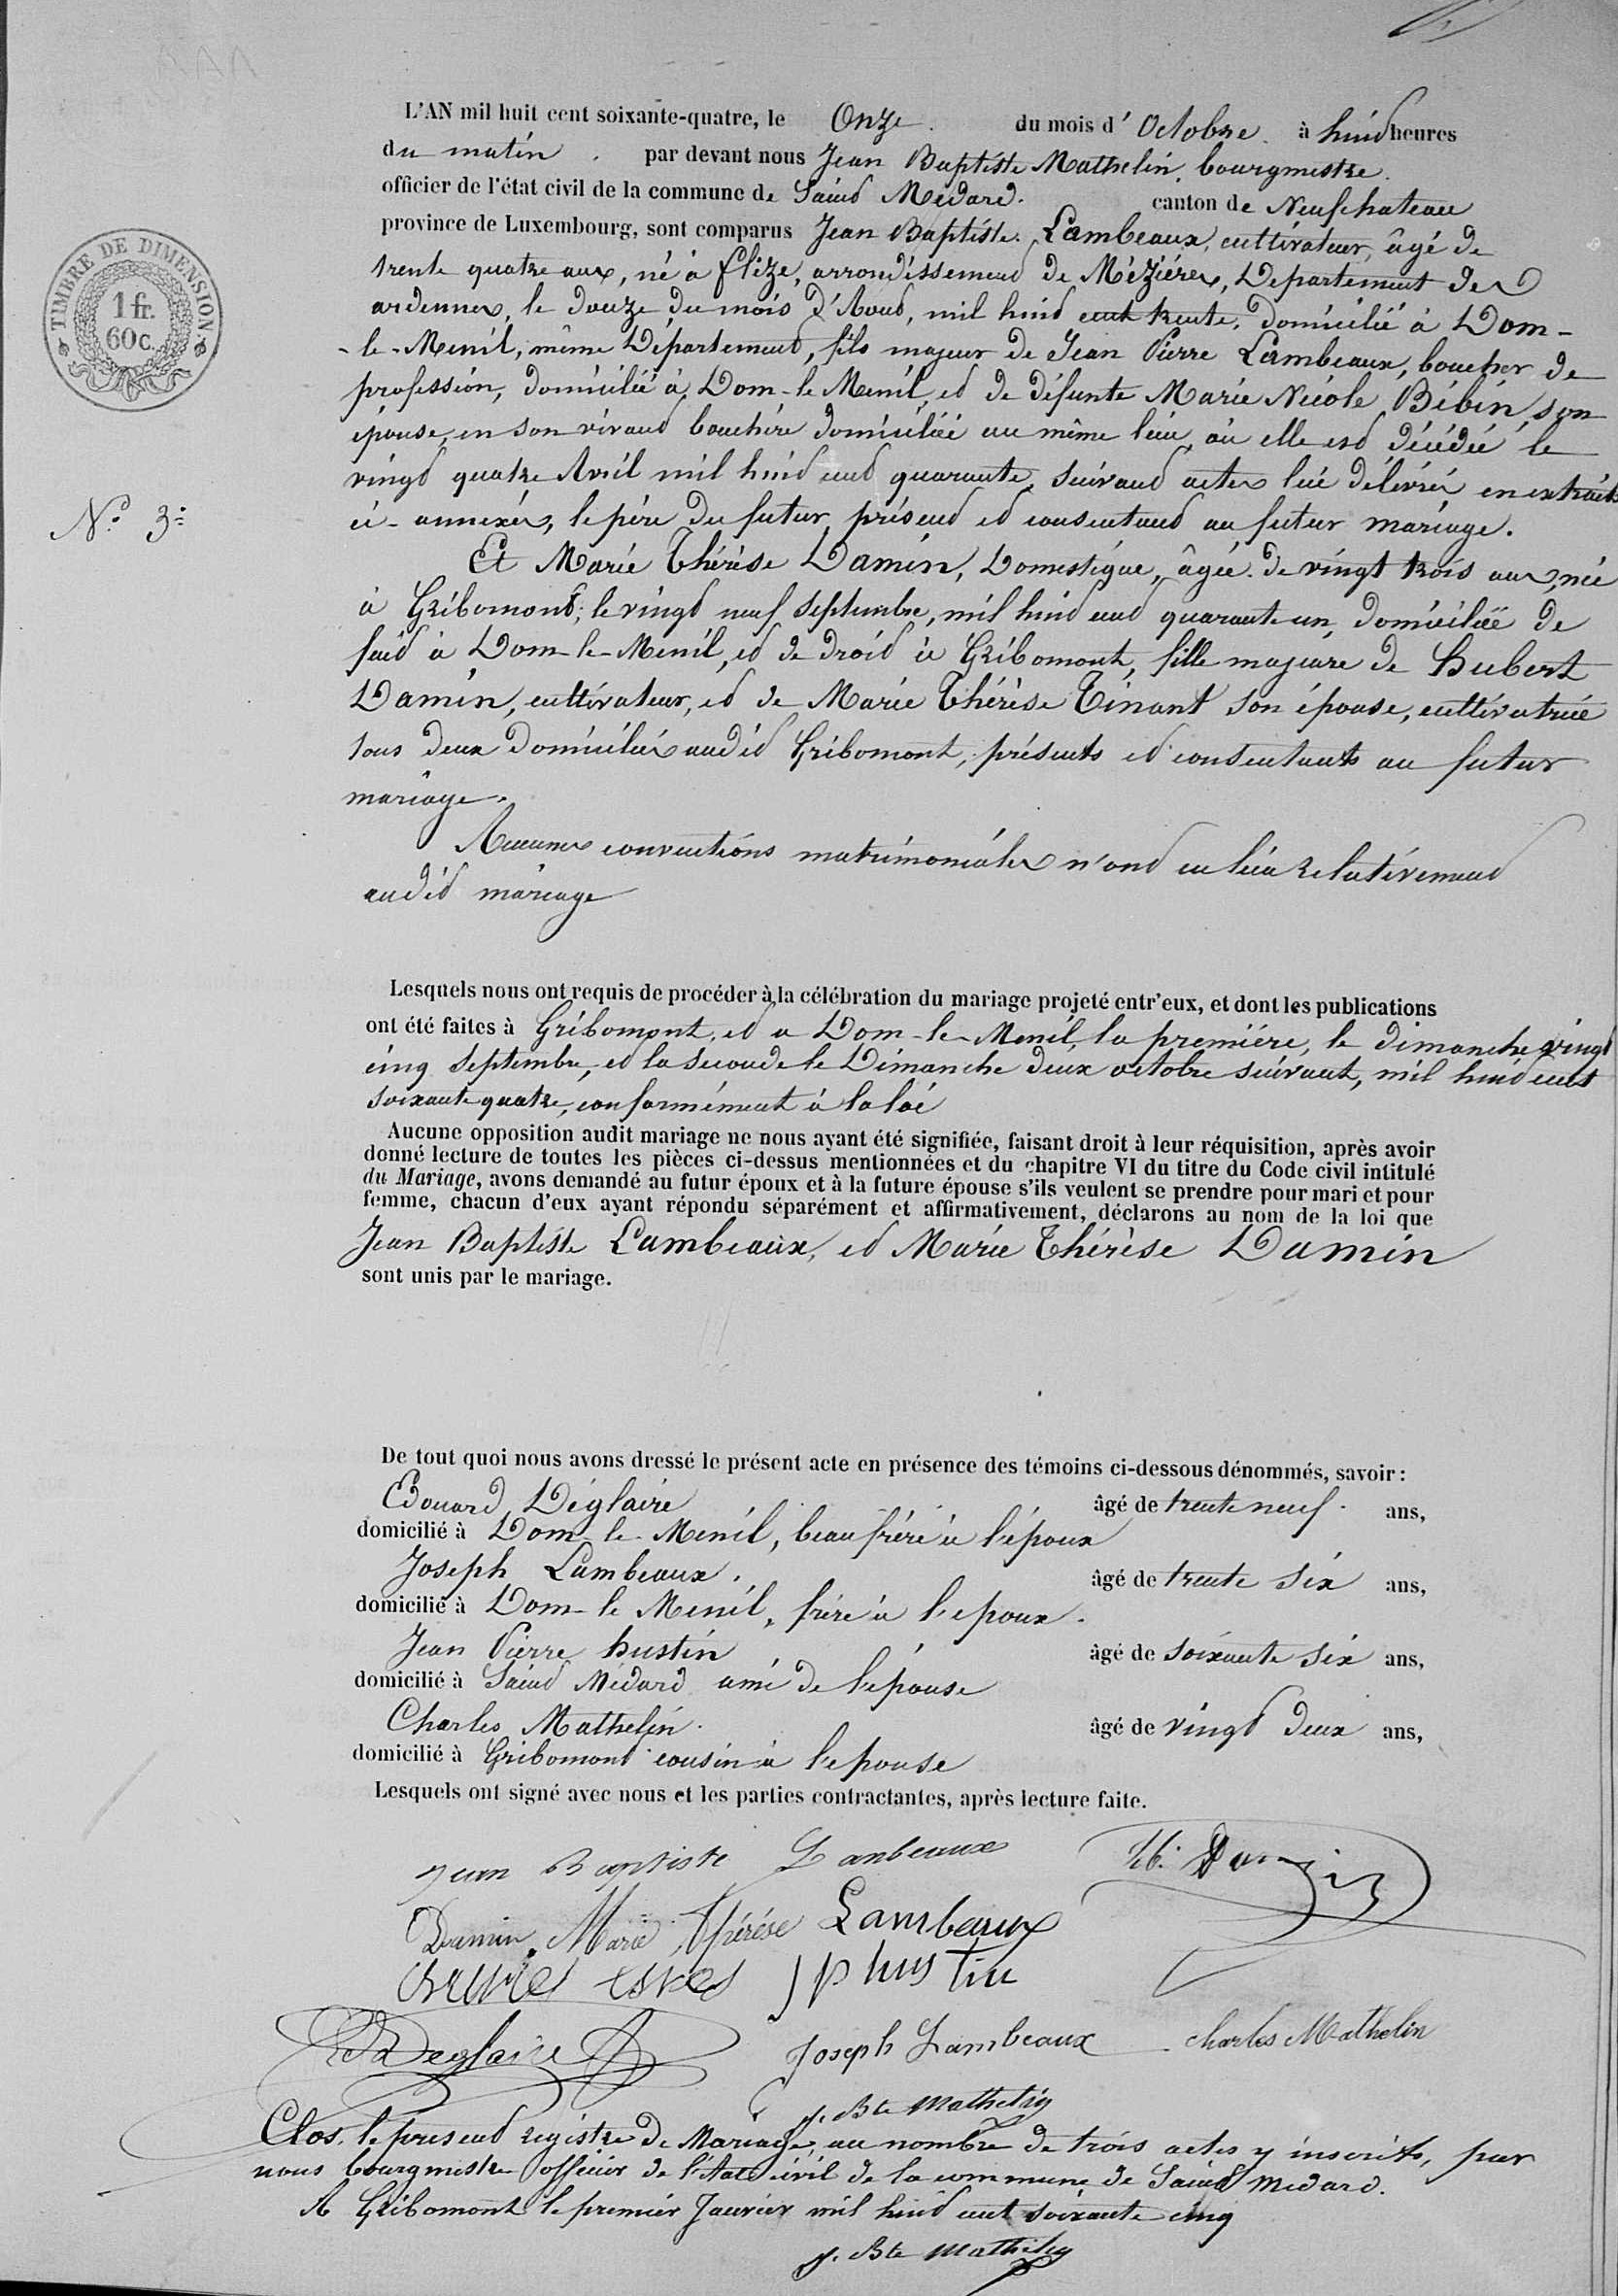 L'AN mil huit cent soixante-quatre, le Onze. du mois d' Octobre. à huit heures
du matin. par devant nous Jean Baptiste Mathelin, bourgmestre.
officier de l'état civil de la commune de Saint Médard. canton de Neufchateau
province de Luxembourg, sont comparus Jean Baptiste. Lambeaux, cultivateur, âgé de
trente quatre ans, né à Flize, arrondissement de Mézières, Departement des
ardennes, le douze du mois d'Aout, mil huit cent trente, domicilié à Dom-
-le-Menil, même Département, fils majeur de Jean Pierre Lambeaux, boucher de
profession, domicilié à Dom-le-Menil, et de défunte Marie Nicole Bébin, son
épouse, en son vivant bouchère domiciliée au même lieu, où elle est décédée le
vingt quatre Avril mil huit cent quarante, suivant actes lui délivrés en extraits
ci-annexés, le père du futur, présent et consentant au futur mariage.
N.º 3:
Et Marie Thérèse Damin, Domestique, âgée de vingt trois ans, née
à Gribomont; le vingt neuf septembre, mil huit cent quarante un, domiciliée de
fait à Dom-le-Menil, et de droit à Gribomont, fille majeure de Hubert
Damin, cultivateur, et de Marie Thérèse Tinant son épouse, cultivatrice
tous deux domiciliés audit Gribomont, présents et consentants au futur
mariage.
Aucunes conventions matrimoniales n'ont eu lieu relativement
audit mariage
Lesquels nous ont requis de procéder à la célébration du mariage projeté entr'eux, et dont les publications
ont été faites à Gribomont, et a Dom-le-Menil, la première, le dimanche vingt
cinq septembre, et la seconde le Dimanche deux octobre suivant, mil huit cent
soixante quatre, conformément à la loi
Aucune opposition audit mariage ne nous ayant été signifiée, faisant droit à leur réquisition, après avoir
donné lecture de toutes les pièces ci-dessus mentionnées et du chapitre VI du titre du Code civil intitulé
du Mariage, avons demandé au futur époux et à la future épouse s'ils veulent se prendre pour mari et pour
femme, chacun d'eux ayant répondu séparément et affirmativement, déclarons au nom de la loi que
Jean Baptiste Lambeaux, et Marie Thérèse Damin
sont unis par le mariage.
De tout quoi nous avons dressé le présent acte en présence des témoins ci-dessous dénommés, savoir:
Edouard Déglaire âgé de trente neuf. ans,
domicilié à Dom-le-Menil, beau frère à l'époux
Joseph Lambeaux. âgé de trente six ans,
domicilié à Dom-le Menil, frère à l'epoux.
Jean Pierre hustin âgé de soixante six ans,
domicilié à Saint Médard ami de l'épouse
Charles Mathelin. âgé de vingt deux ans,
domicilié à Gribomont cousin à l'epouse
Lesquels ont signé avec nous et les parties contractantes, après lecture faite.
Jean Baptiste Lanbeaux
Damin
Damin. Marie Thérèse Lambeaux
jp hustin
Ed Deglaire Joseph Lambeaux Charles Mathelin
J. Bte Mathelin
Clos, le present registre de Mariage, au nombre de trois actes y inscrits, par
nous bourgmestre officier de l'état civil de la commune de Saint Medard.
A Gribomont le premier Janvier mil huit cent soixante cinq
J. Bte Mathelin
TIMBRE DE DIMENSION
1 fr.
60c.